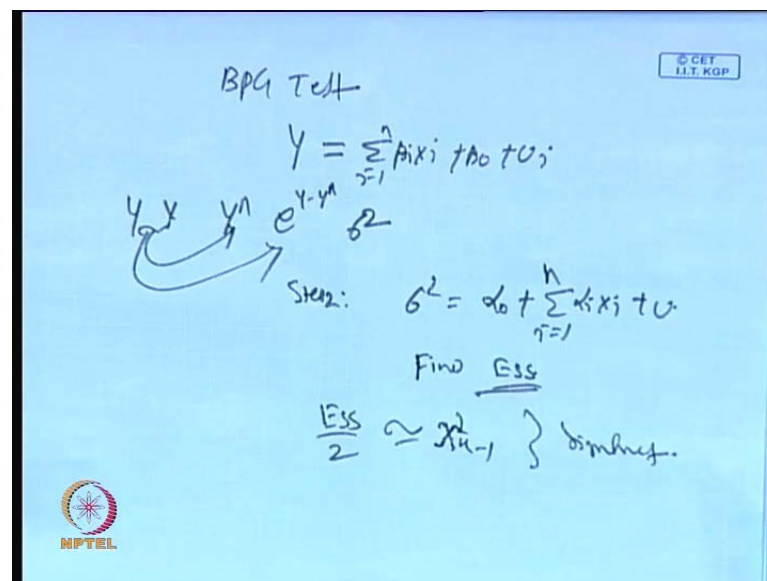 © CET
I.I.T. KGP
BPG Test
Y = Σⁿᵢ₌₁ βᵢxᵢ + β₀ + Uᵢ
Y X Y^ e^Y-Y^ σ²
Step 2: σ² = α₀ + Σⁿᵢ₌₁ αᵢxᵢ + U
Find ESS
ESS/2 ≃ χ²ₖ₋₁ }
NPTEL